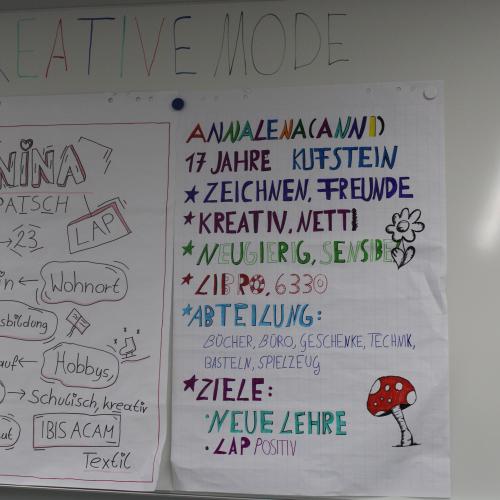 KREATIVE MODE
NINA
LAP
→23
← Wohnort
← Hobbys,
→ Schulisch, kreativ
IBIS ACAM
Textil
ANNALENA (ANNI)
17 JAHRE KUFSTEIN
★ ZEICHNEN, FREUNDE
★ KREATIV, NETT
★ NEUGIERIG, SENSIBEL
★ LIBRO, 6330
★ ABTEILUNG:
BÜCHER, BÜRO, GESCHENKE, TECHNIK,
BASTELN, SPIELZEUG
★ ZIELE:
· NEUE LEHRE
· LAP POSITIV